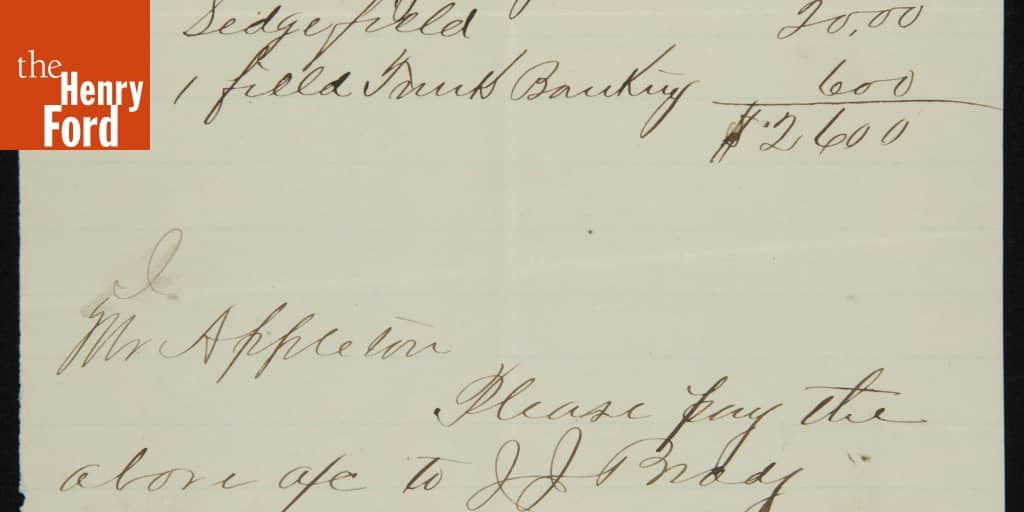 the
Henry
Ford
Sedgefield 20,00
1 field Trunk Banking 600
$2600
Mr Appleton
Please pay the
above a/c to J J Brady